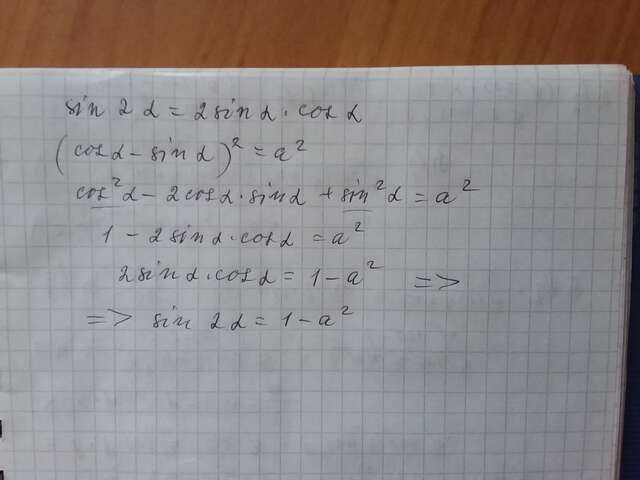 sin 2α = 2sin α · cos α
(cos α - sin α)² = a²
cos²α - 2cos α · sin α + sin²α = a²
1 - 2sin α · cos α = a²
2sin α · cos α = 1 - a² =>
=> sin 2α = 1 - a²